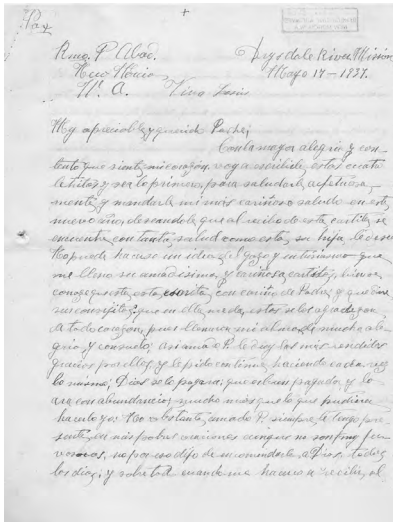 Pax
+
Rmo. P. Abad.
Drysdale River Mission
New Norcia
Mayo 17 - 1937.
W. A.
Viva Jesús
My apreciable y querido Padre;
Con la mayor alegria y con-
tento que siente mi corazon, voy a escribirle estas cuatro
letritas y sea lo primero, para saludarle afetuosa-
mente y mandarle mi más cariñoso saludo en este
nuevo año, deseandole que al recibo de esta cartita se
encuentre con tanta salud como esta su hija le desea
No puede hacerse un idea el gozo y entusiasmo que
me lleno su amadisima y cariñosa cartita, bien se
conoze que esta, esta escrita, con cariño de Padre, y que dire
sus consejitos que en ella me da, estos se los agradezco
de todo corazón, pues llenaron mi alma de mucha ale-
gria y consuelo; asi amado P. le doy las más rendidas
gracias por ellos y le pido continue haciendo cada vez
lo mismo; Dios se lo pagara; que es buen pagador y lo
ara con abundancia y mucho más que lo que pudiera
hacerlo yo. No obstante, amado P. siempre le tengo pre-
sente, en mis pobres oraciones aunque ni son muy fer-
vorosas, no por eso dejo de encomendarle a Dios, todos
los dias, y sobretod cuando me hacerco a recibir al